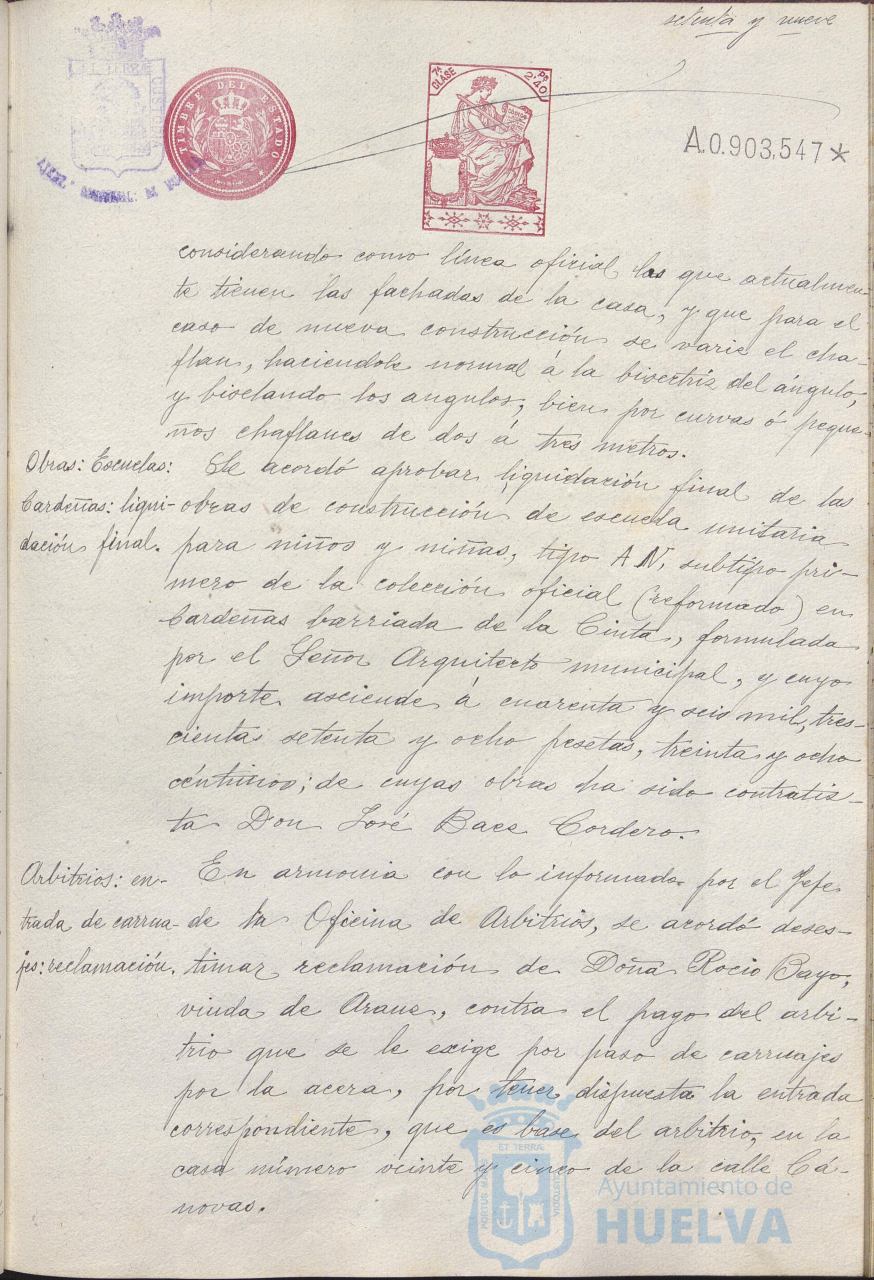 setenta y nueve
TIMBRE DEL ESTADO
7ª CLASE
2'40 Ps
A.0.903,547*
considerando como línea oficial las que actualmen-
te tienen las fachadas de la casa, y que para el
caso de nueva construcción se varie el cha-
flan, haciendole normal á la bisectriz del ángulo,
y biselando los angulos, bien por curvas ó peque-
ños chaflanes de dos á tres metros.
Obras: Escuelas:
Cardeñas: liqui-
dación final.
Se acordó aprobar liquidación final de las
obras de construcción de escuela unitaria
para niños y niñas, tipo A.N. subtipo pri-
mero de la colección oficial (reformado) en
Cardeñas barriada de la Cinta, formulada
por el Señor Arquitecto municipal, y cuyo
importe asciende á cuarenta y seis mil, tres-
cientas setenta y ocho pesetas, treinta y ocho
céntimos; de cuyas obras ha sido contratis-
ta Don José Baes Cordero.
Arbitrios: en-
trada de carrua-
jes: reclamación.
En armonia con lo informado por el Jefe
de la Oficina de Arbitrios, se acordó deses-
timar reclamación de Doña Rocio Bayo,
viuda de Arauz, contra el pago del arbi-
trio que se le exige por paso de carruajes
por la acera, por tener dispuesta la entrada
correspondiente, que es base del arbitrio, en la
casa número veinte y cinco de la calle Cá-
novas.
Ayuntamiento de
HUELVA